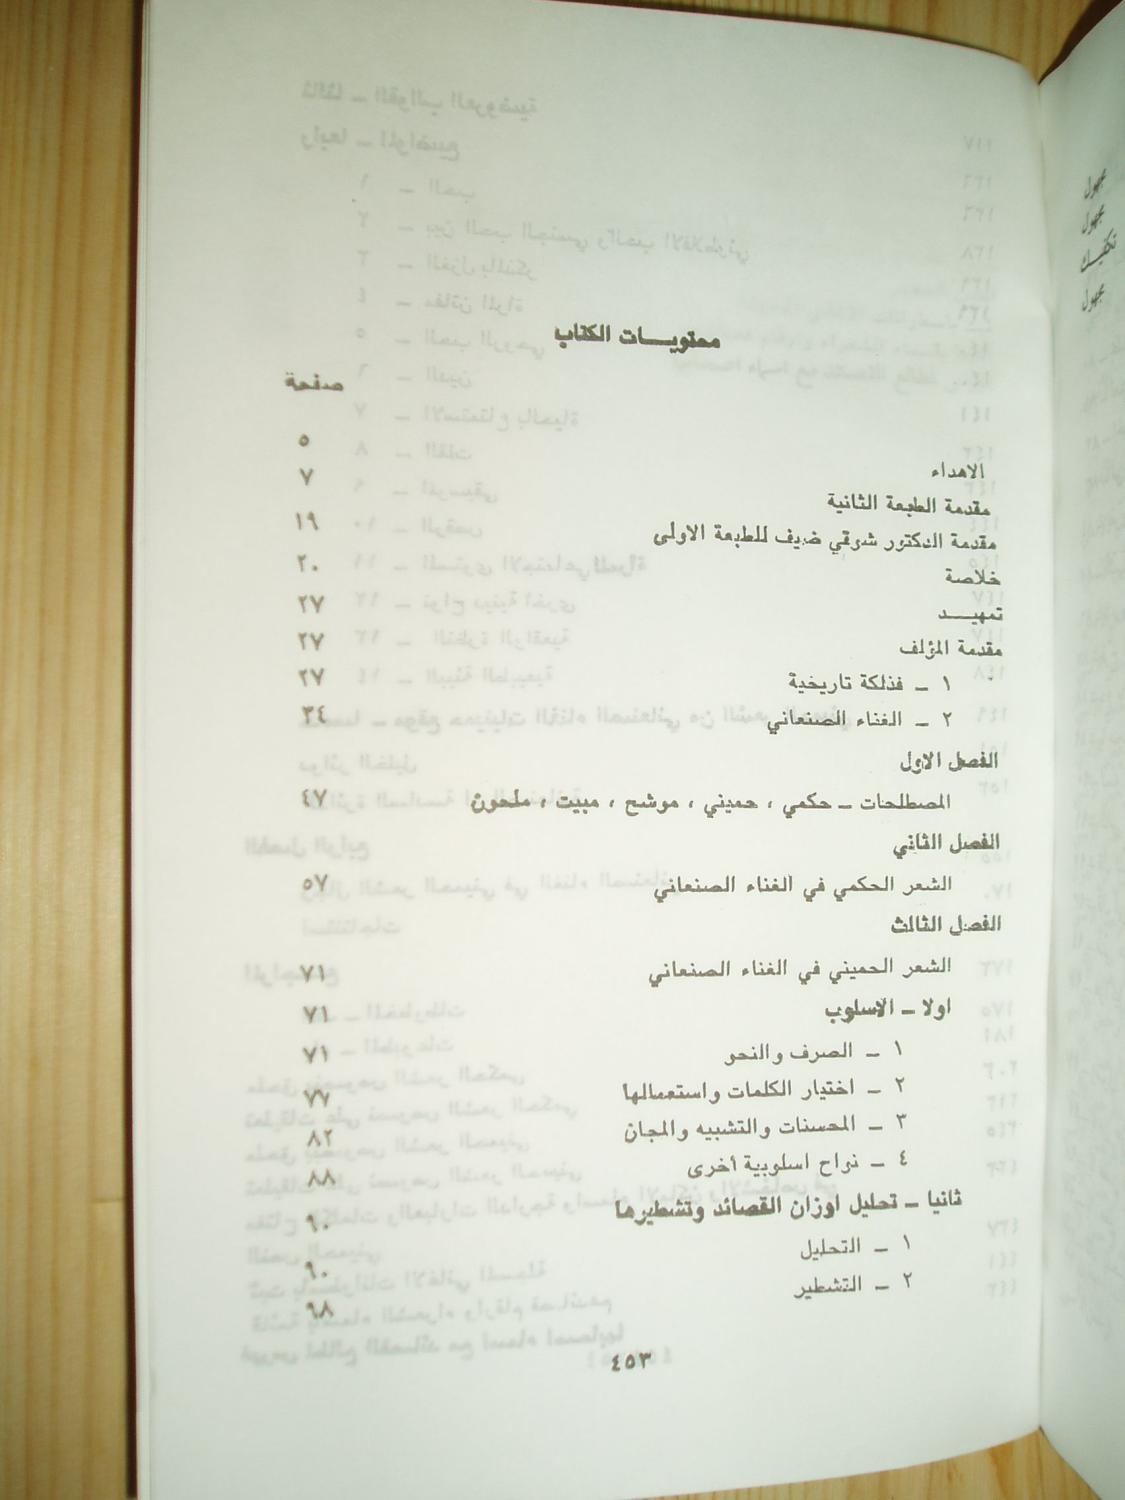 محتويـــات الكتاب
صفحة
الاهداء ٥
مقدمة الطبعة الثانية ٧
مقدمة الدكتور شوقي ضيف للطبعة الاولى ١٩
خلاصة ٢٠
تمهيـــد ٢٧
مقدمة المؤلف ٢٧
١ ـ فذلكة تاريخية ٢٧
٢ ـ الغناء الصنعاني ٣٤
الفصل الاول
المصطلحات ـ حكمي ، حميني ، موشح ، مبيت ، ملحون ٤٧
الفصل الثاني
الشعر الحكمي في الغناء الصنعاني ٥٧
الفصل الثالث
الشعر الحميني في الغناء الصنعاني ٧١
اولا ـ الاسلوب ٧١
١ ـ الصرف والنحو ٧١
٢ ـ اختيار الكلمات واستعمالها ٧٧
٣ ـ المحسنات والتشبيه والمجان ٨٢
٤ ـ نواح اسلوبية أخرى ٨٨
ثانيا ـ تحليل اوزان القصائد وتشطيرها ٩٠
١ ـ التحليل ٩٠
٢ ـ التشطير ٩٨
٤٥٣
مجهول
مجهول
مجهول